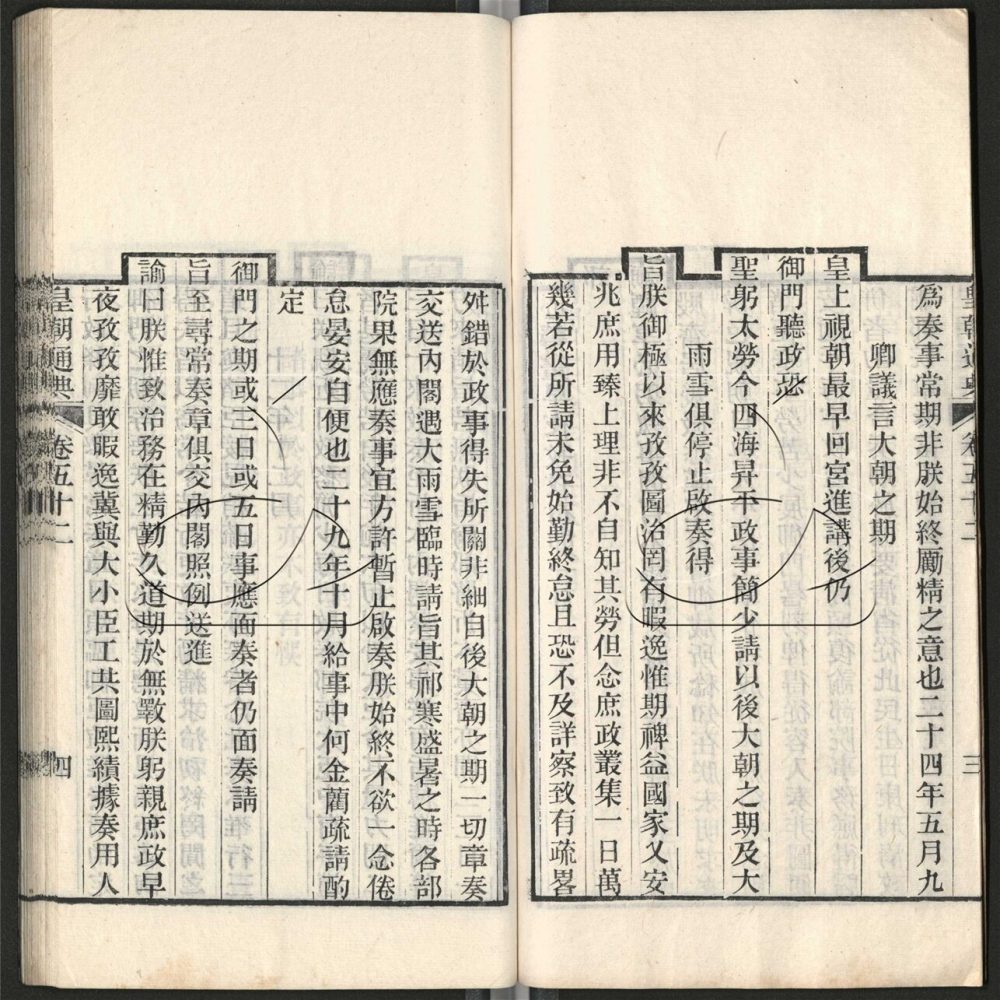 皇朝通典 卷五十二 三
爲奏事常期非朕始終勵精之意也二十四年五月九
卿議言大朝之期
皇上視朝最早回宮進講後仍
御門聽政恐
聖躬太勞今四海昇平政事簡少請以後大朝之期及大
雨雪俱停止啟奏得
旨朕御極以來孜孜圖治罔有暇逸惟期裨益國家乂安
兆庶用臻上理非不自知其勞但念庶政叢集一日萬
幾若從所請未免始勤終怠且恐不及詳察致有疏畧
舛錯於政事得失所關非細自後大朝之期一切章奏
交送內閣遇大雨雪臨時請旨其祁寒盛暑之時各部
院果無應奏事宜方許暫止啟奏朕始終不欲一念倦
怠晏安自便也二十九年十月給事中何金藺疏請酌
定
御門之期或三日或五日事應面奏者仍面奏請
旨至尋常奏章俱交內閣照例送進
諭曰朕惟致治務在精勤久道期於無斁朕躬親庶政早
夜孜孜靡敢暇逸冀與大小臣工共圖熙績據奏用人
皇朝通典 卷五十二 四